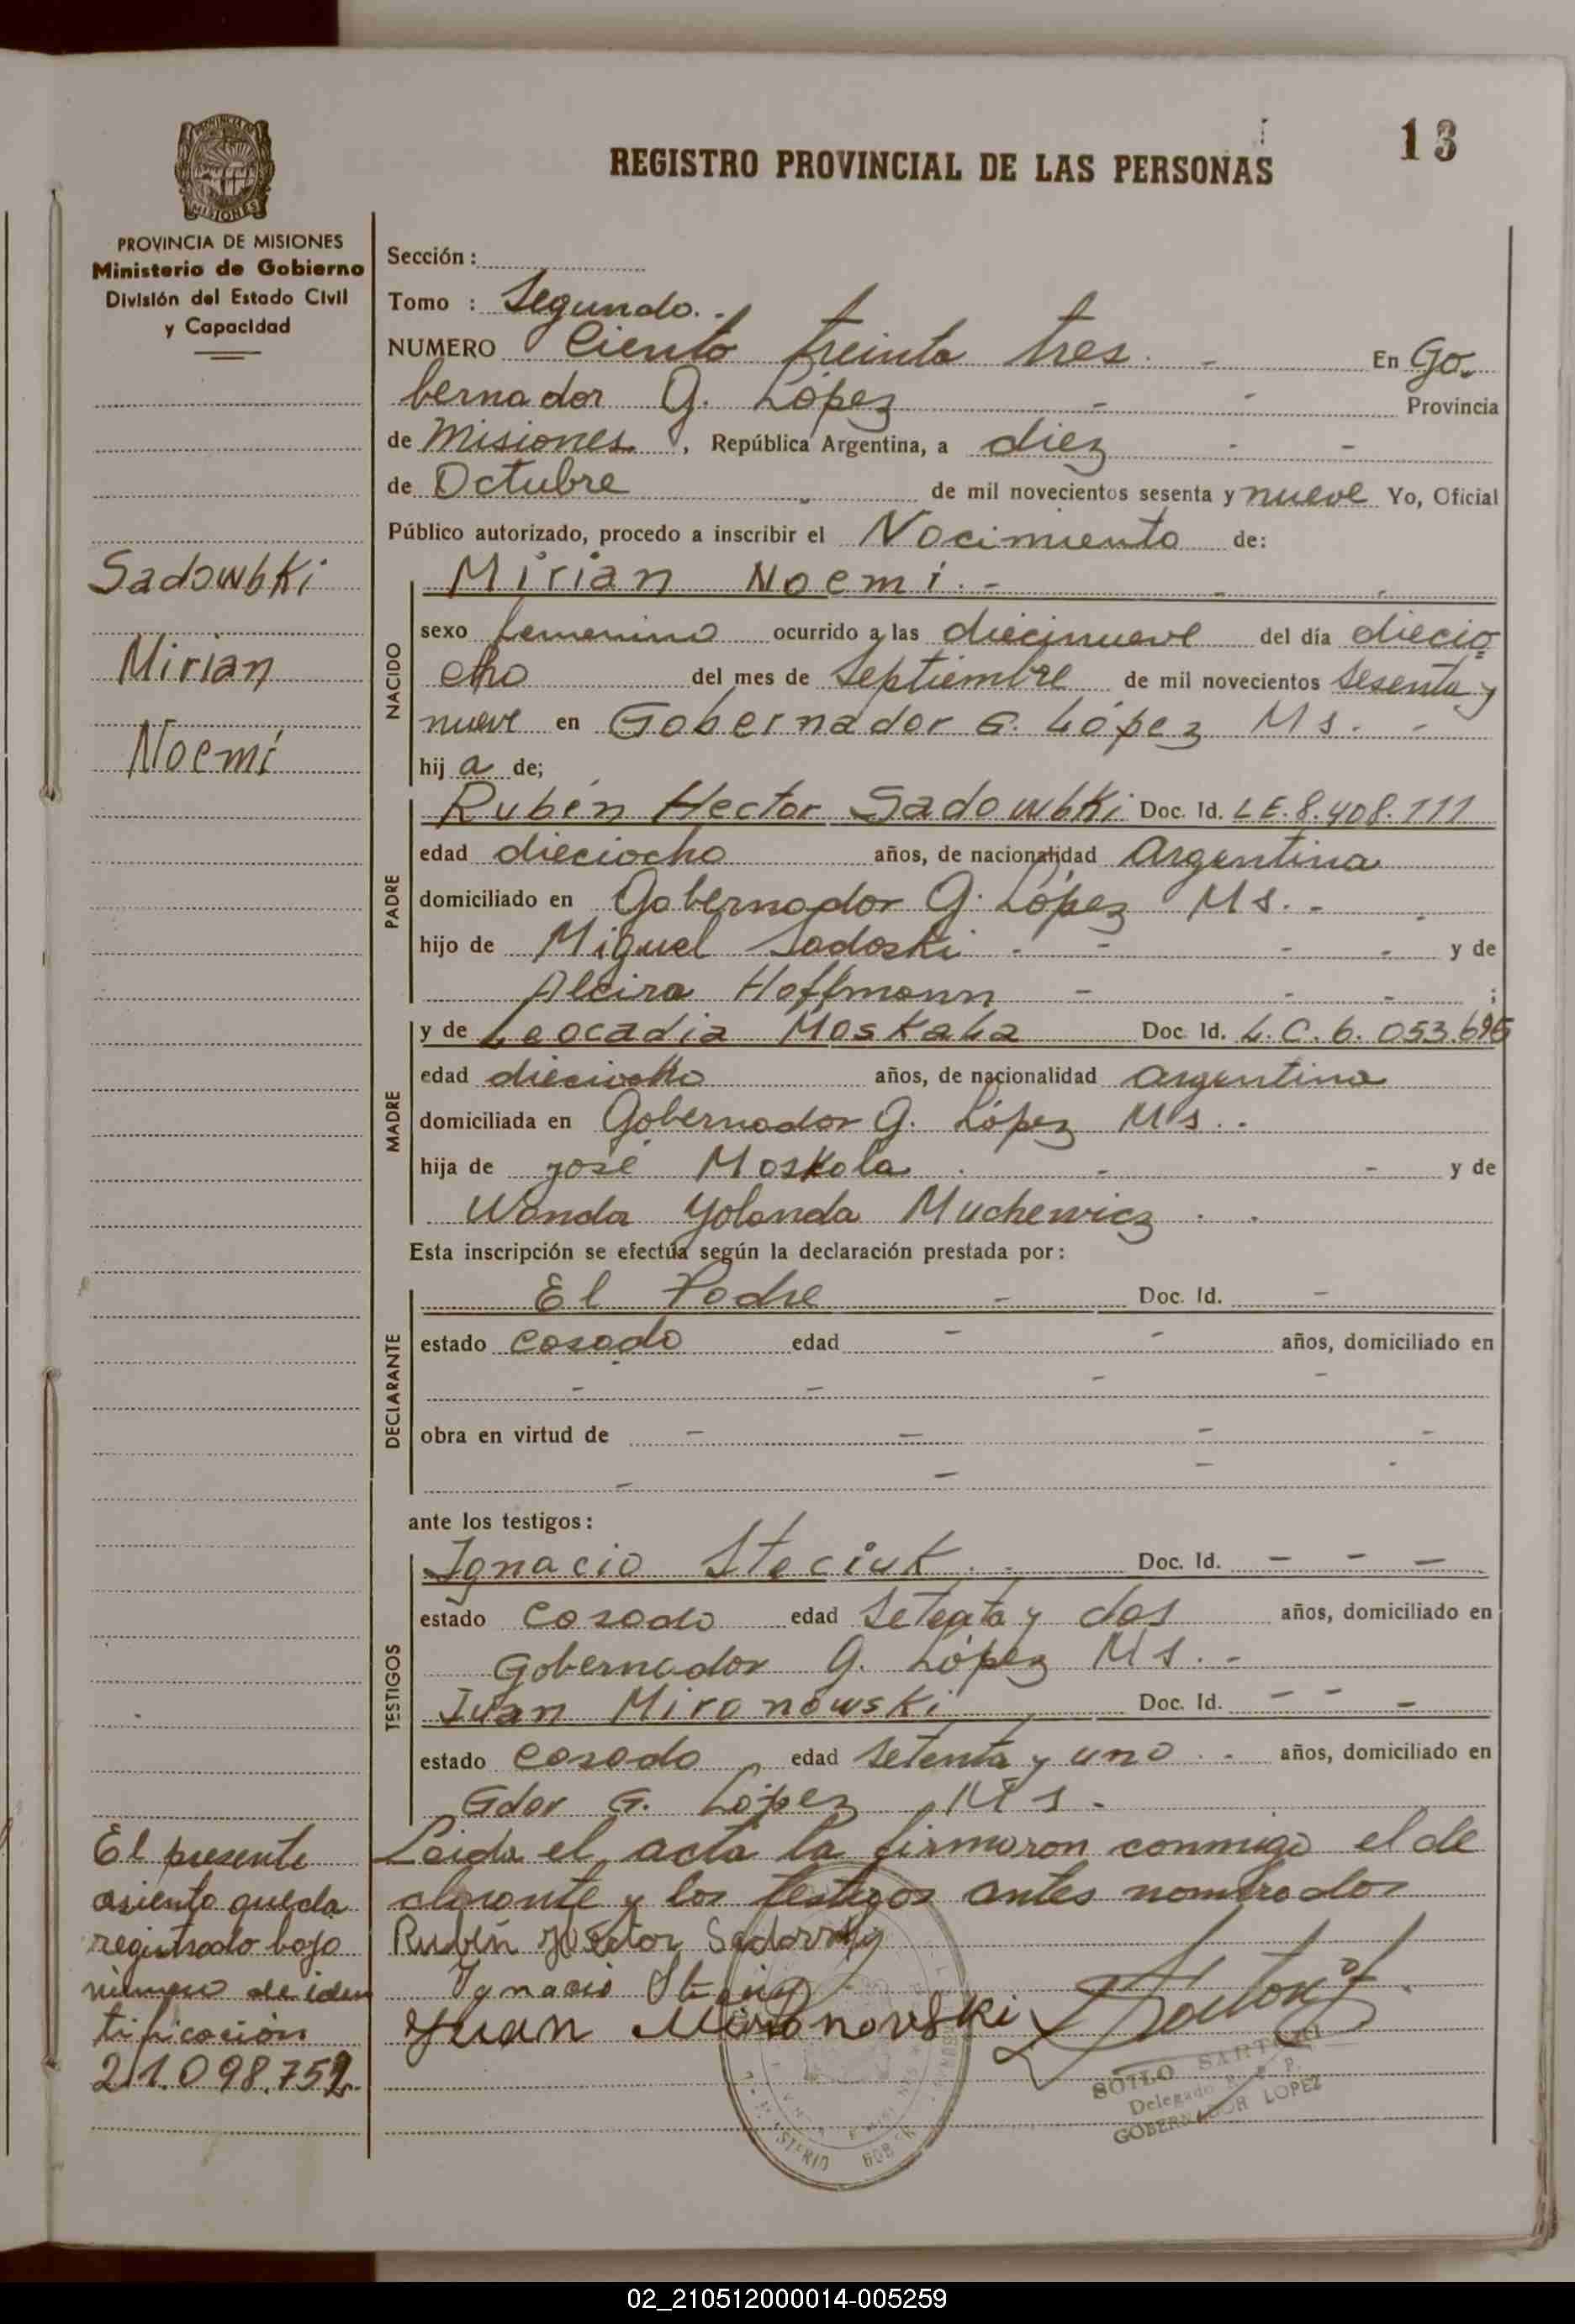 13
REGISTRO PROVINCIAL DE LAS PERSONAS
PROVINCIA DE MISIONES
MISIONES
PROVINCIA DE MISIONES
Ministerio de Gobierno
División del Estado Civil
y Capacidad
Sadowbki
Mirian
Noemí
El presente
asiento queda
registrado bajo
número de iden
tificación
21.098.752.
Sección :
Tomo : Segundo.
NUMERO Ciento treinta tres. - En Go.
bernador G. López - - Provincia
de Misiones, República Argentina, a diez - -
de Octubre - de mil novecientos sesenta y nueve Yo, Oficial
Público autorizado, procedo a inscribir el Nacimiento de:
NACIDO
Mirian Noemí. - - -
sexo femenino ocurrido a las diecinueve del día diecio=
cho del mes de Septiembre de mil novecientos sesenta y
nueve en Gobernador G. López Ms. -
hij a de;
PADRE
Rubén Hector Sadowbki Doc. Id. LE.8.408.111
edad dieciocho años, de nacionalidad Argentina
domiciliado en Gobernador G. López Ms. -
hijo de Miguel Sadoski - - - - y de
Alcira Hoffmann - - - ;
MADRE
y de Leocadia Moskala Doc. Id. L.C.6.053.695
edad dieciocho años, de nacionalidad Argentina
domiciliada en Gobernador G. López Ms. -
hija de José Moskola - - - y de
Wanda Yolanda Muchewicz - -
Esta inscripción se efectúa según la declaración prestada por:
DECLARANTE
El Padre - Doc. Id. -
estado casado edad - - años, domiciliado en
- - - -
obra en virtud de - - - -
- - - -
ante los testigos:
TESTIGOS
Ignacio Steciuk - - Doc. Id. - - -
estado casado edad setenta y dos años, domiciliado en
Gobernador G. López Ms. -
Juan Mironowski Doc. Id. - - -
estado casado edad setenta y uno - - años, domiciliado en
Gdor G. López Ms -
Leida el acta la firmaron conmigo el de
clarante y los testigos antes nombrados
Rubén Héctor
Ygnacio
Juan Mironovski
SOTLO
Delegado R. P. P.
GOBERNADOR LOPEZ
02_210512000014-005259